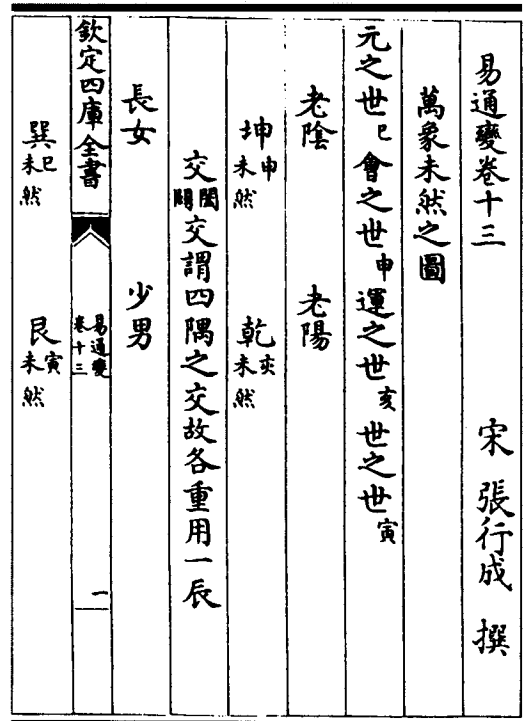 易通變卷十三
宋 張行成 撰
萬象未然之圖
元之世巳會之世申運之世亥世之世寅
老陰 老陽
坤申未然 乾亥未然
交閤闢交謂四隅之交故各重用一辰
長女 少男
欽定四庫全書 易通變卷十三 一
巽巳未然 艮寅未然